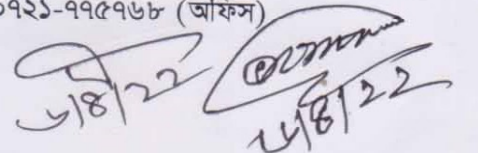 ০৭২১-৭৭৫৭৬৮ (অফিস)
৬/৪/২২
৬/৪/২২